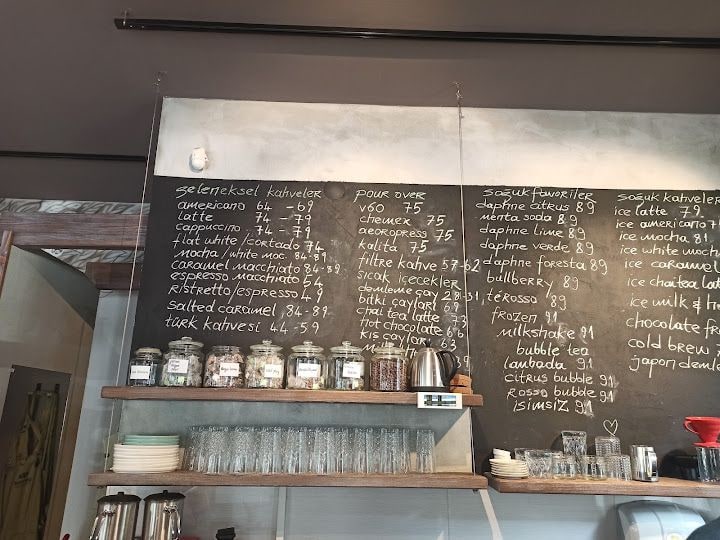 geleneksel kahveler
americano 64 - 69
latte 74 - 79
cappuccino 74 - 79
flat white/cortado 74
mocha/white moc. 84-89
caramel macchiato 84-89
espresso macchiato 54
Ristretto/espresso 49
salted caramel, 84-89
türk kahvesi 44-59
pour over
v60 75
chemex 75
aeoropress 75
kalita 75
filtre kahve 57-62
sıcak içecekler
demleme çay 28-31
bitki çayları 69
chai tea latte 73
Hot chocolate
kış çayları 63
soğuk favoriler
daphne citrus 89
menta soda 89
daphne lime 89
daphne verde 89
daphne foresta 89
bullberry 89
terosso 89
frozen 91
milkshake 91
bubble tea
lambada 91
citrus bubble 91
Rosso bubble 91
isimsiz 91
soğuk kahveler
ice latte 79
ice americano
ice mocha 81
ice white moch
ice caramel
ice chai tea lat
ice milk & h
chocolate fr
cold brew
japon demle